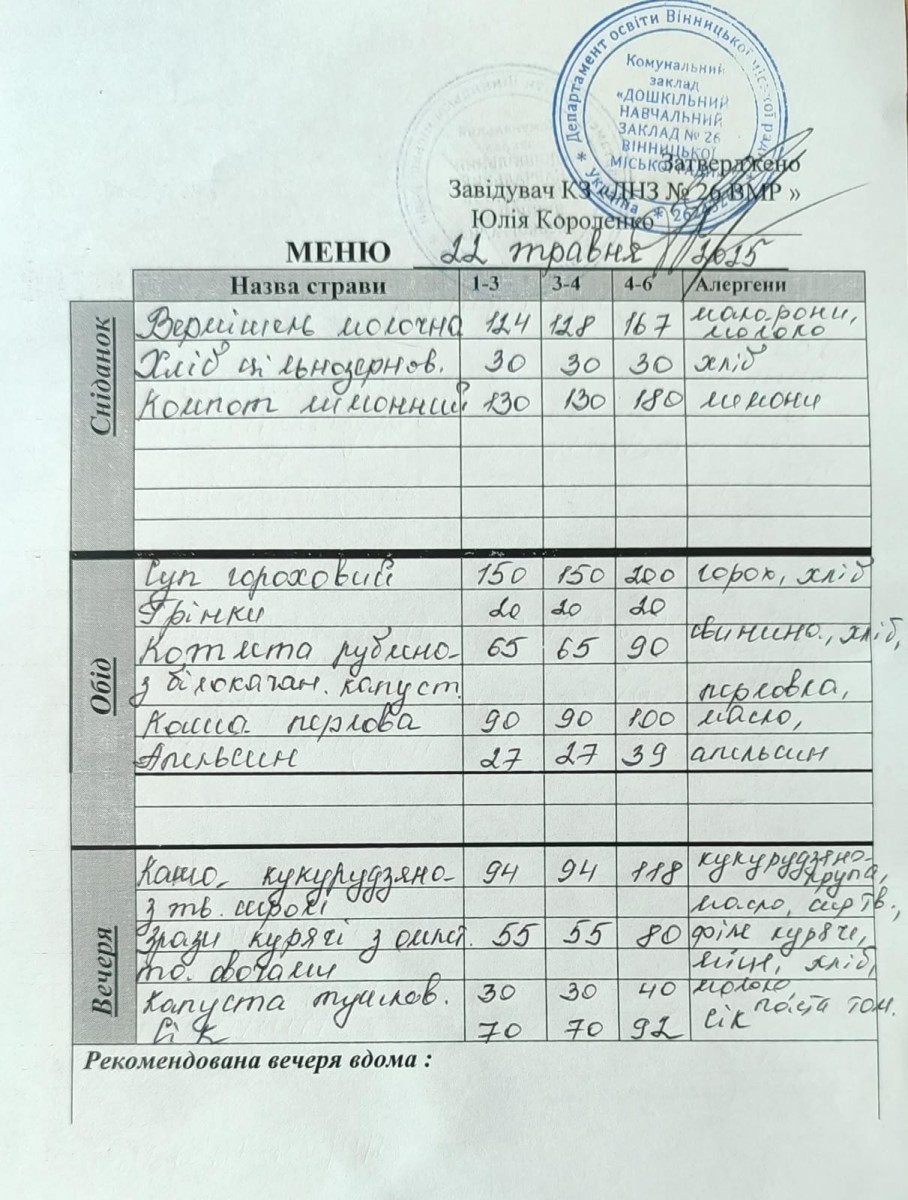 Департамент освіти Вінницької міської ради
Комунальний
заклад
«ДОШКІЛЬНИЙ
НАВЧАЛЬНИЙ
ЗАКЛАД № 26
ВІННИЦЬКОЇ
МІСЬКОЇ РАДИ»
* Україна *
Затверджено
Завідувач КЗ «ДНЗ № 26 ВМР »
Юлія Короленко
МЕНЮ 22 травня 2025
Назва страви 1-3 3-4 4-6 Алергени
Сніданок
Вермішель молочна 124 128 167 макарони, молоко
Хліб цільнозернов. 30 30 30 хліб
Компот лимонний 130 130 180 лимони
Обід
Суп гороховий 150 150 200 горох, хліб
Грінки 20 20 20
Котлета рублена 65 65 90 свинина, хліб,
з білокачан. капуст. перловка,
Каша перлова 90 90 100 масло,
Апельсин 27 27 39 апельсин
Вечеря
Каша кукурудзяна 94 94 118 кукурудзяна крупа,
з тв. сиром масло, сир тв.,
Зрази курячі з омлет. 55 55 80 філе куряче,
та овочами яйце, хліб,
Капуста тушков. 30 30 40 молоко, паста том.
Сік 70 70 92 Сік
Рекомендована вечеря вдома :